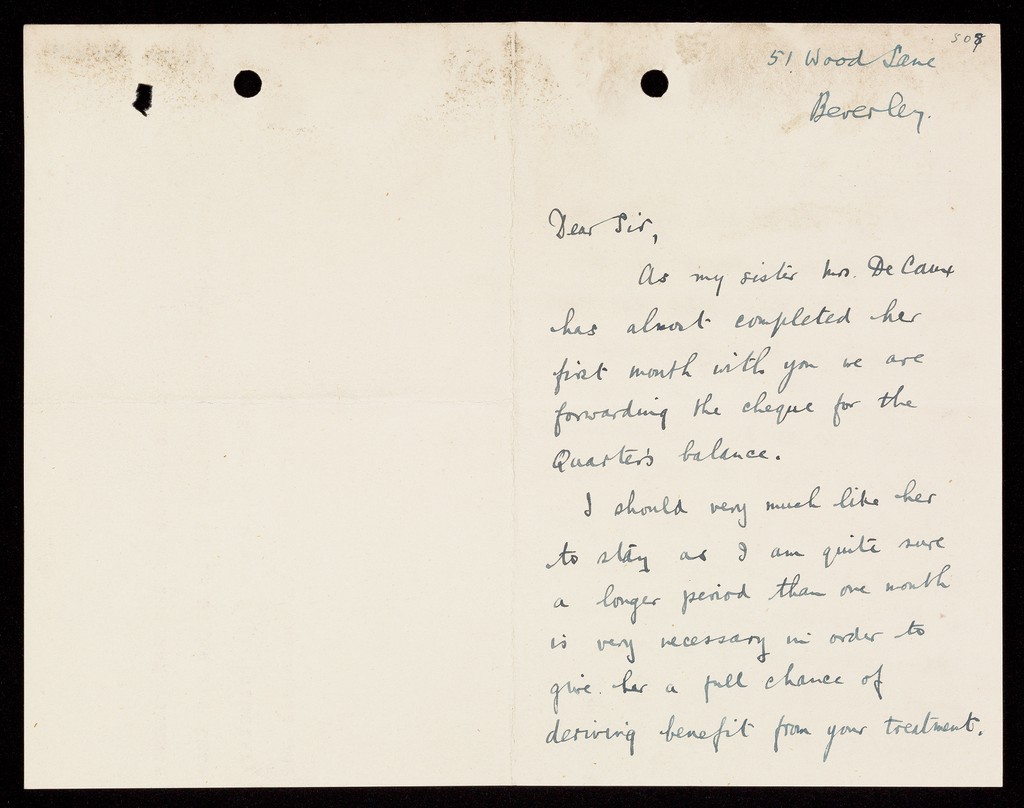 508
51 Wood Lane
Beverley.
Dear Sir,
As my sister Mrs. De Caux
has almost completed her
first month with you we are
forwarding the cheque for the
Quarter's balance.
I should very much like her
to stay as I am quite sure
a longer period than one month
is very necessary in order to
give her a full chance of
deriving benefit from your treatment.